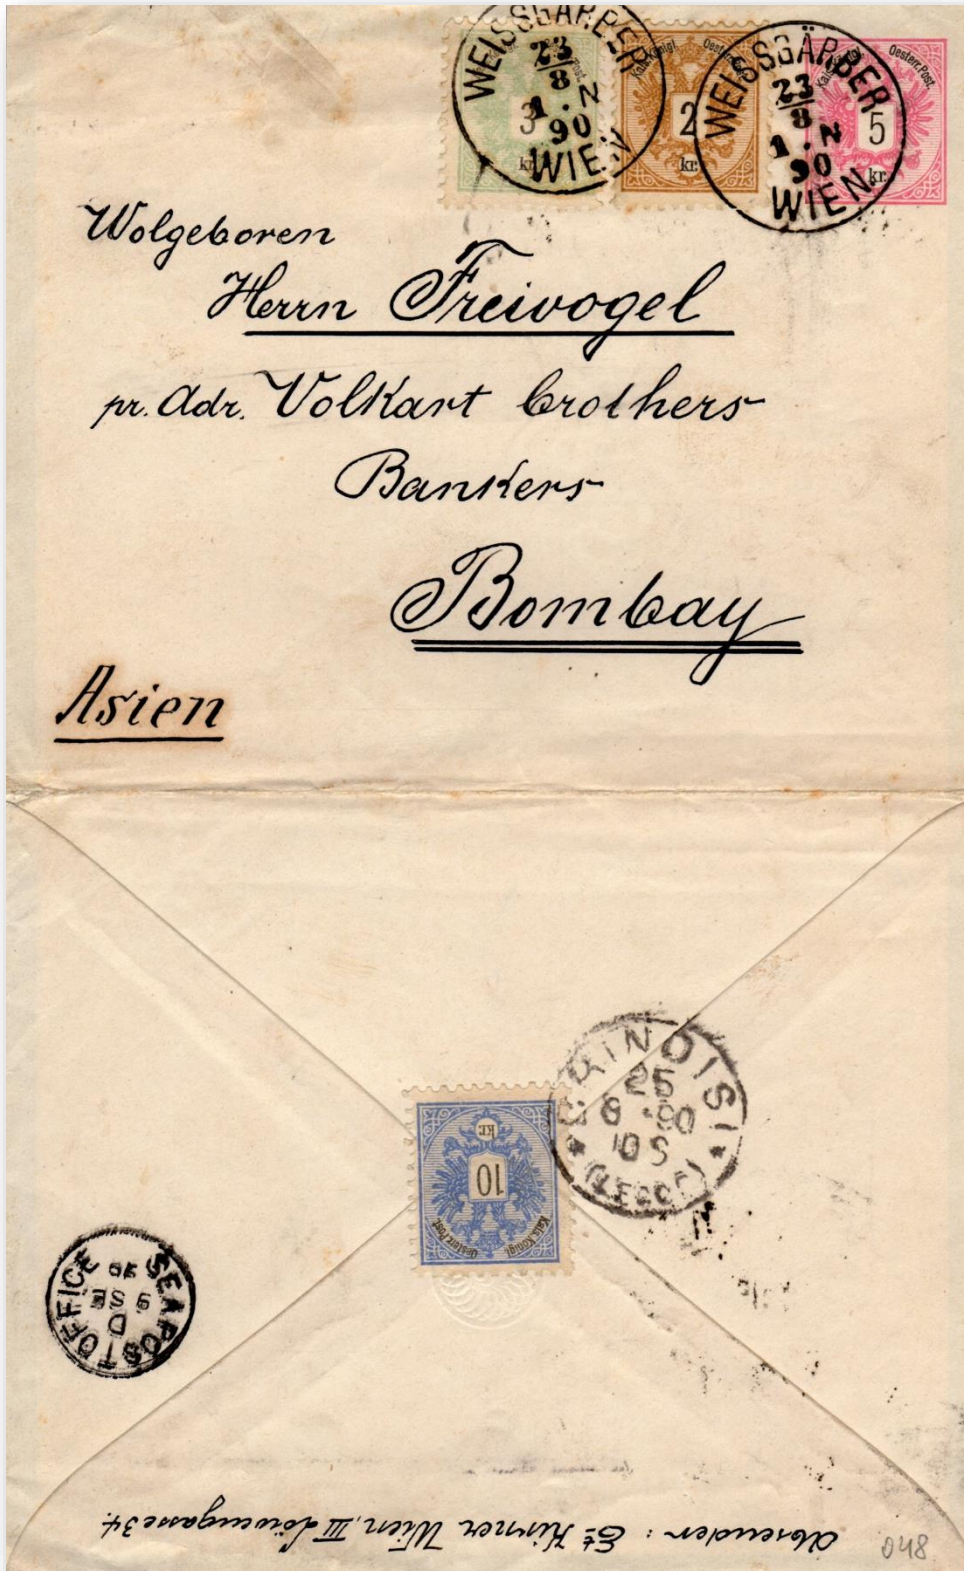 WEISSGÄRBER
23
8
1.N
90
WIEN
3
kr.
Post.
Kais. Königl. Oesterr. Post.
2
kr.
WEISSGÄRBER
23
8
1.N
90
WIEN
Kais. Königl. Oesterr. Post.
5
kr.
Wolgeboren
Herrn Freivogel
pr. Adr. Volkart brothers
Bankers
Bombay
Asien
BRINDISI
25
8 90
10 S
(LECCE)
kr.
10
Kais. Königl. Oesterr. Post.
SEA POST OFFICE
D
9 SE
90
Absender: Et Kirner Wien, III Löwengasse 34.
048